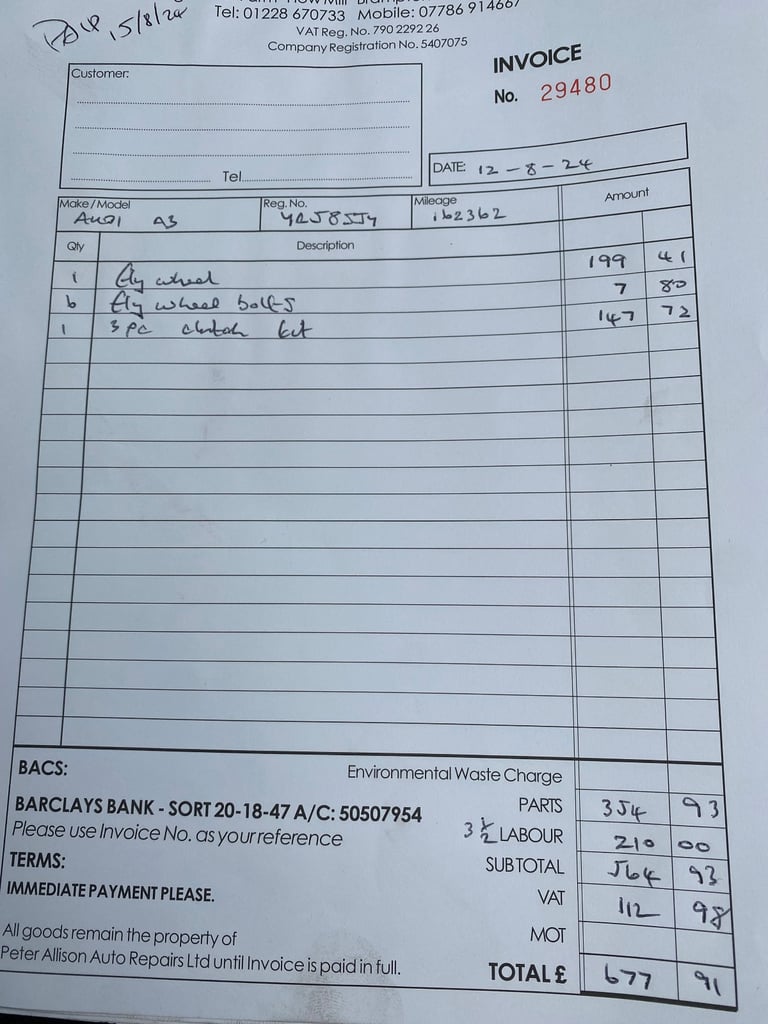 PAID 15/8/24
Tel: 01228 670733 Mobile: 07786 914667
VAT Reg. No. 790 2292 26
Company Registration No. 5407075
INVOICE
No. 29480
Customer:
Tel
DATE: 12-8-24
Make/Model Reg. No. Mileage Amount
AUDI A3 YR58SJY 162362
Qty Description
1 fly wheel 199 41
6 fly wheel bolts 7 80
1 3 pc clutch kit 147 72
BACS: Environmental Waste Charge
BARCLAYS BANK - SORT 20-18-47 A/C: 50507954 PARTS 354 93
Please use Invoice No. as your reference 3 1/2 LABOUR 210 00
TERMS: SUBTOTAL 564 93
IMMEDIATE PAYMENT PLEASE. VAT 112 98
All goods remain the property of MOT
Peter Allison Auto Repairs Ltd until Invoice is paid in full. TOTAL £ 677 91